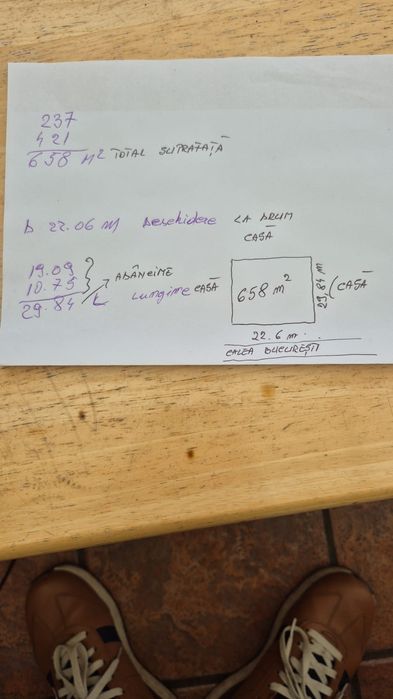 237
421
658 m2 TOTAL SUPRAFAȚĂ
D 22.06 m Deschidere LA DRUM
CASĂ
19.09
10.75
29.84
ADÂNCIME
L Lungime CASĂ
658 m2
29,84 m
CASĂ
22.6 m.
CALEA BUCUREȘTI